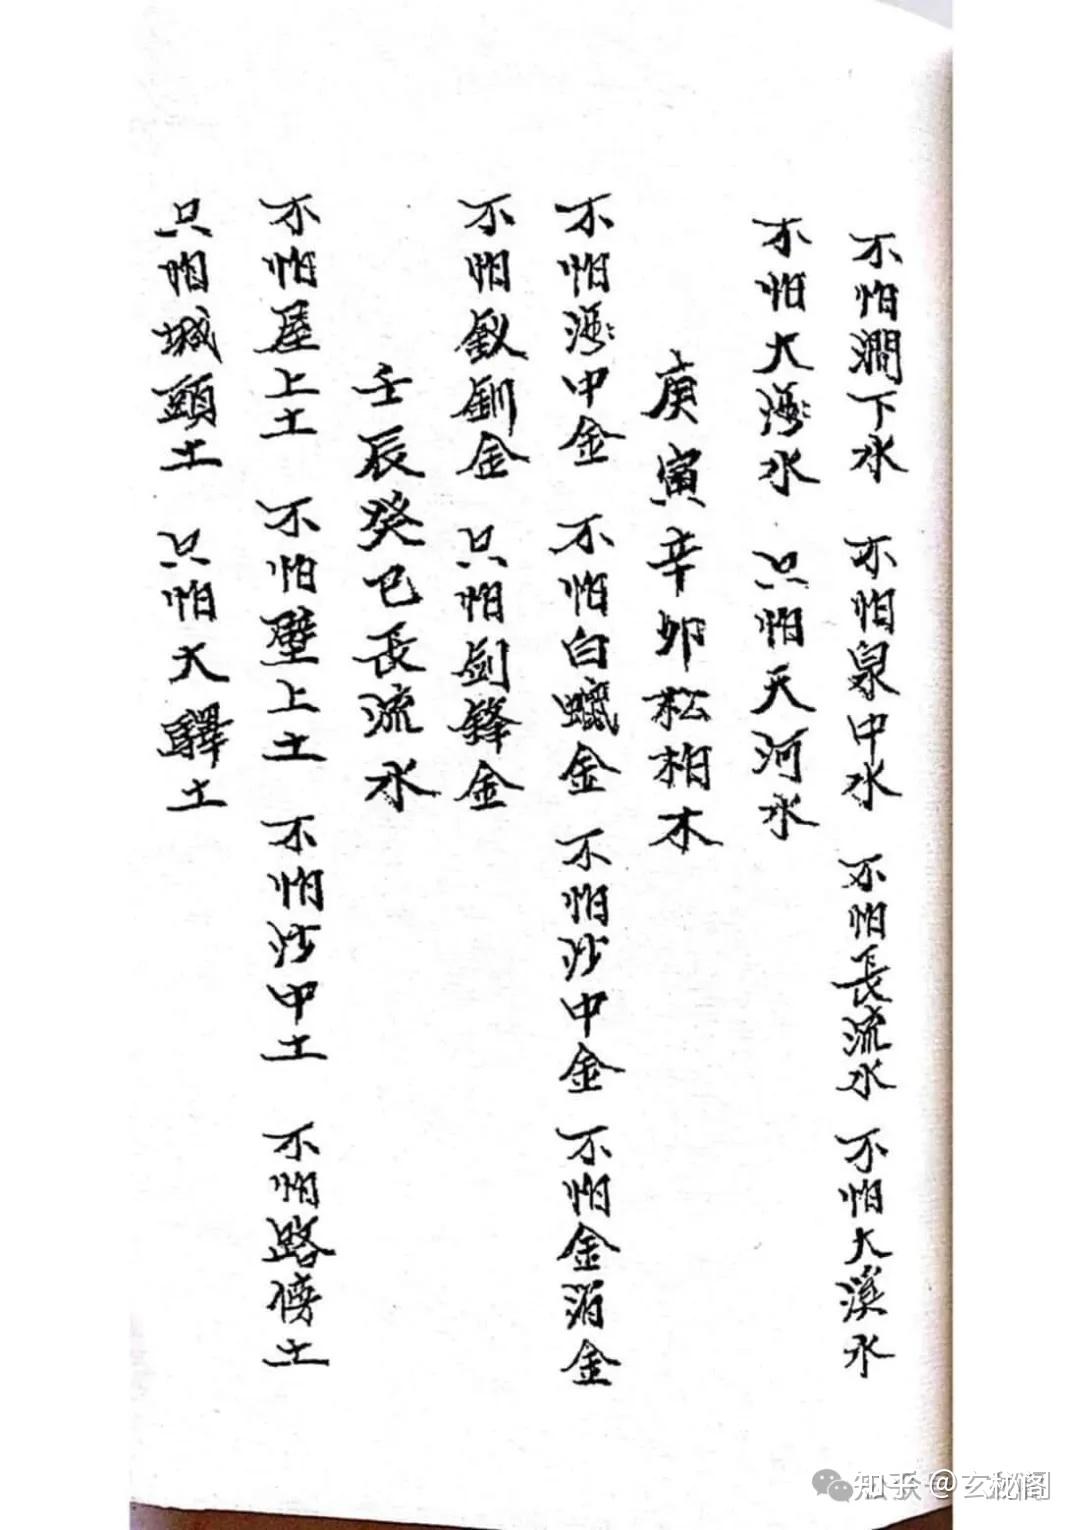 不怕澗下水 不怕泉中水 不怕長流水 不怕大溪水
不怕大海水 只怕天河水
庚寅辛卯松柏木
不怕海中金 不怕白蠟金 不怕沙中金 不怕金泊金
不怕釵釧金 只怕劍鋒金
壬辰癸巳長流水
不怕屋上土 不怕壁上土 不怕沙中土 不怕路傍土
只怕城頭土 只怕大驛土
知乎 @玄秘阁